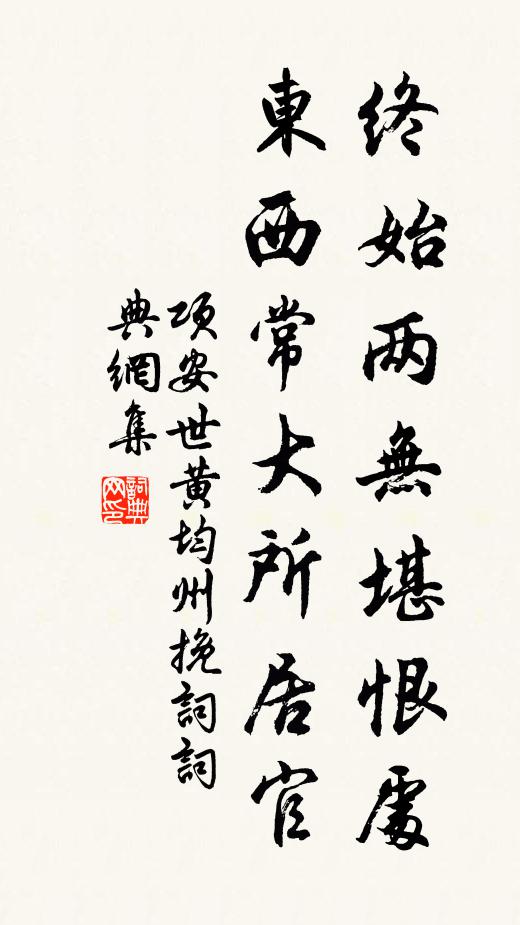 終始两無堪恨處
東西常大所居官
項安世黄均州挽詞詞
典網集
詞典网印